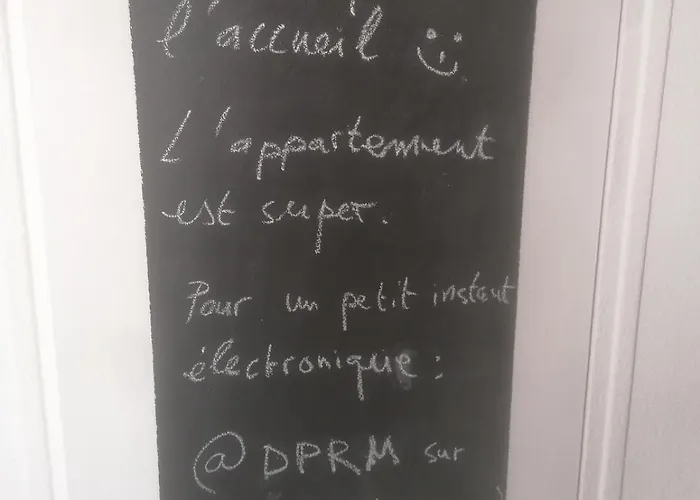 l'accueil
L'appartement
est super.
Pour un petit instant
électronique :
@DPRM sur